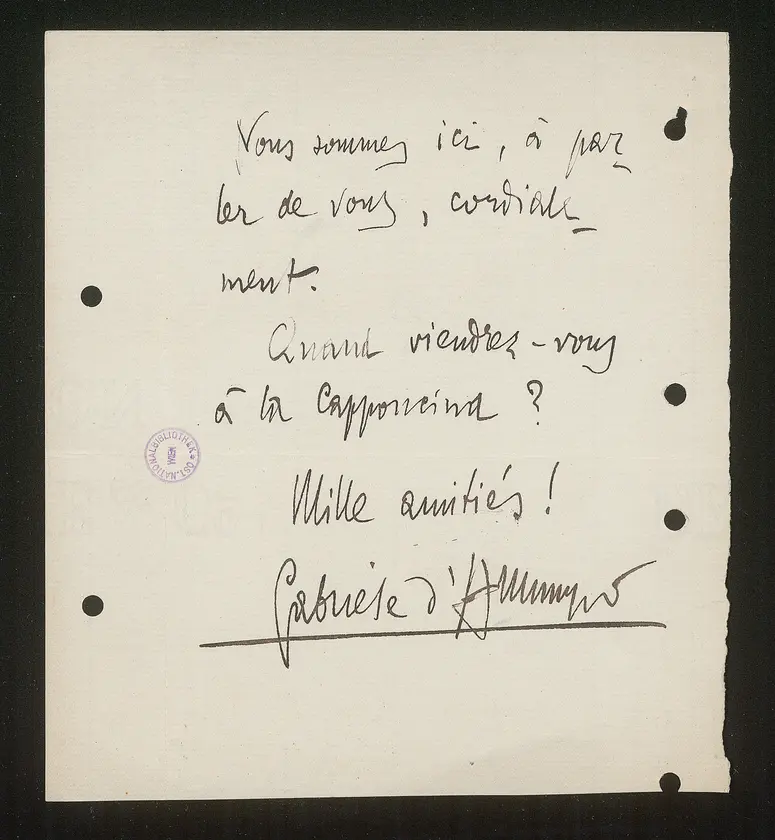 Vous sommes ici, à par-
ler de vous, cordiale-
ment.
Quand viendrez-vous
à la Capponcina ?
Mille amitiés !
Gabriele d'Annunzio
ÖST. NATIONALBIBLIOTHEK
WIEN